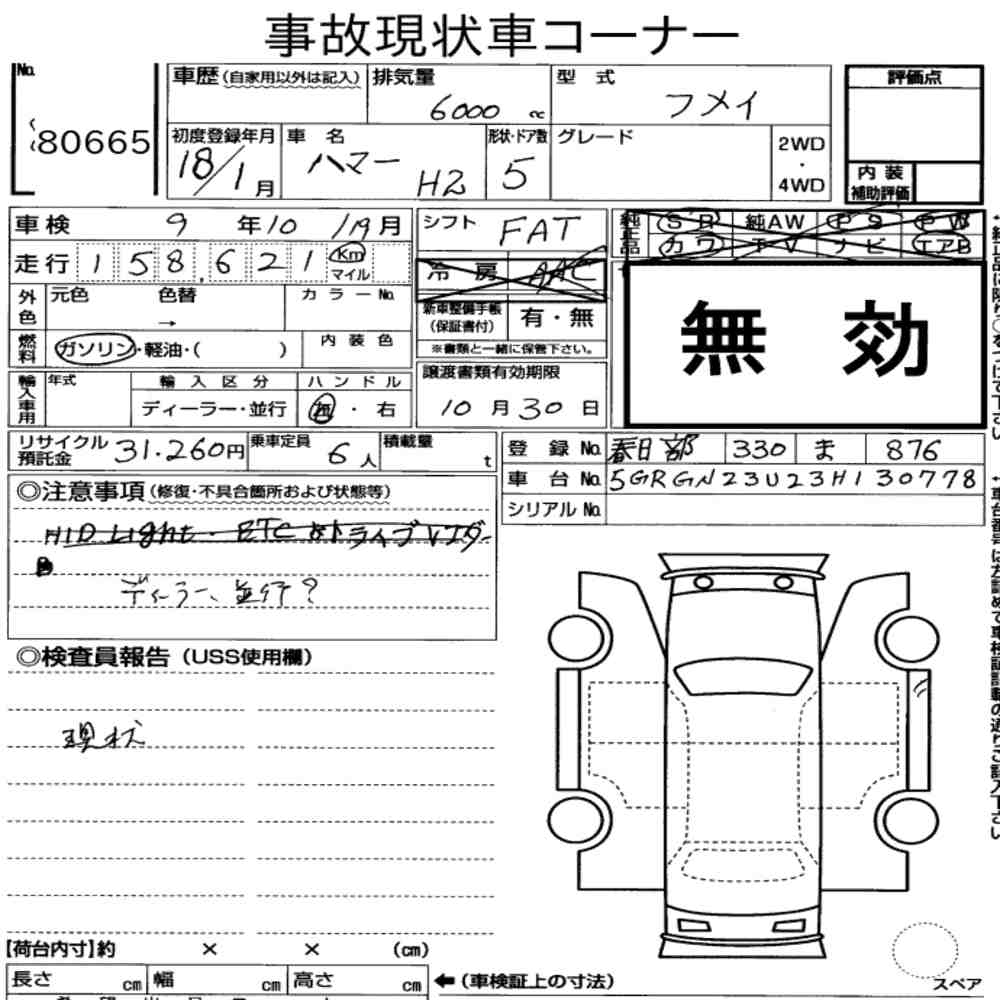 事故現状車コーナー
No. 80665
車歴(自家用以外は記入) 排気量 6000 cc 型式 フメイ 評価点
初度登録年月 18/1月 車名 ハマー H2 形状・ドア数 5 グレード 2WD・4WD 内装補助評価
車検 9年10/19月 シフト FAT 純正品 SR 純AW PS PW
走行 158,621 Km マイル 冷房 AAC カワ TV ナビ エアB
外色 元色 色替 → カラーNo. 新車整備手帳(保証書付) 有・無 無効
燃料 ガソリン・軽油・( ) 内装色 ※書類と一緒に保管下さい。
輸入車用 年式 輸入区分 ハンドル 譲渡書類有効期限
ディーラー・並行 ・右 10月30日
リサイクル預託金 31.260円 乗車定員 6人 積載量 t 登録No. 春日部 330 ま 876
車台No. 5GRGN23U23H130778
シリアルNo.
◎注意事項(修復・不具合箇所および状態等)
HID Light. ETC ドライブ
ディーラー、並行?
◎検査員報告(USS使用欄)
現状
【荷台内寸】約 × × (cm)
長さ cm 幅 cm 高さ cm ←(車検証上の寸法)
スペア